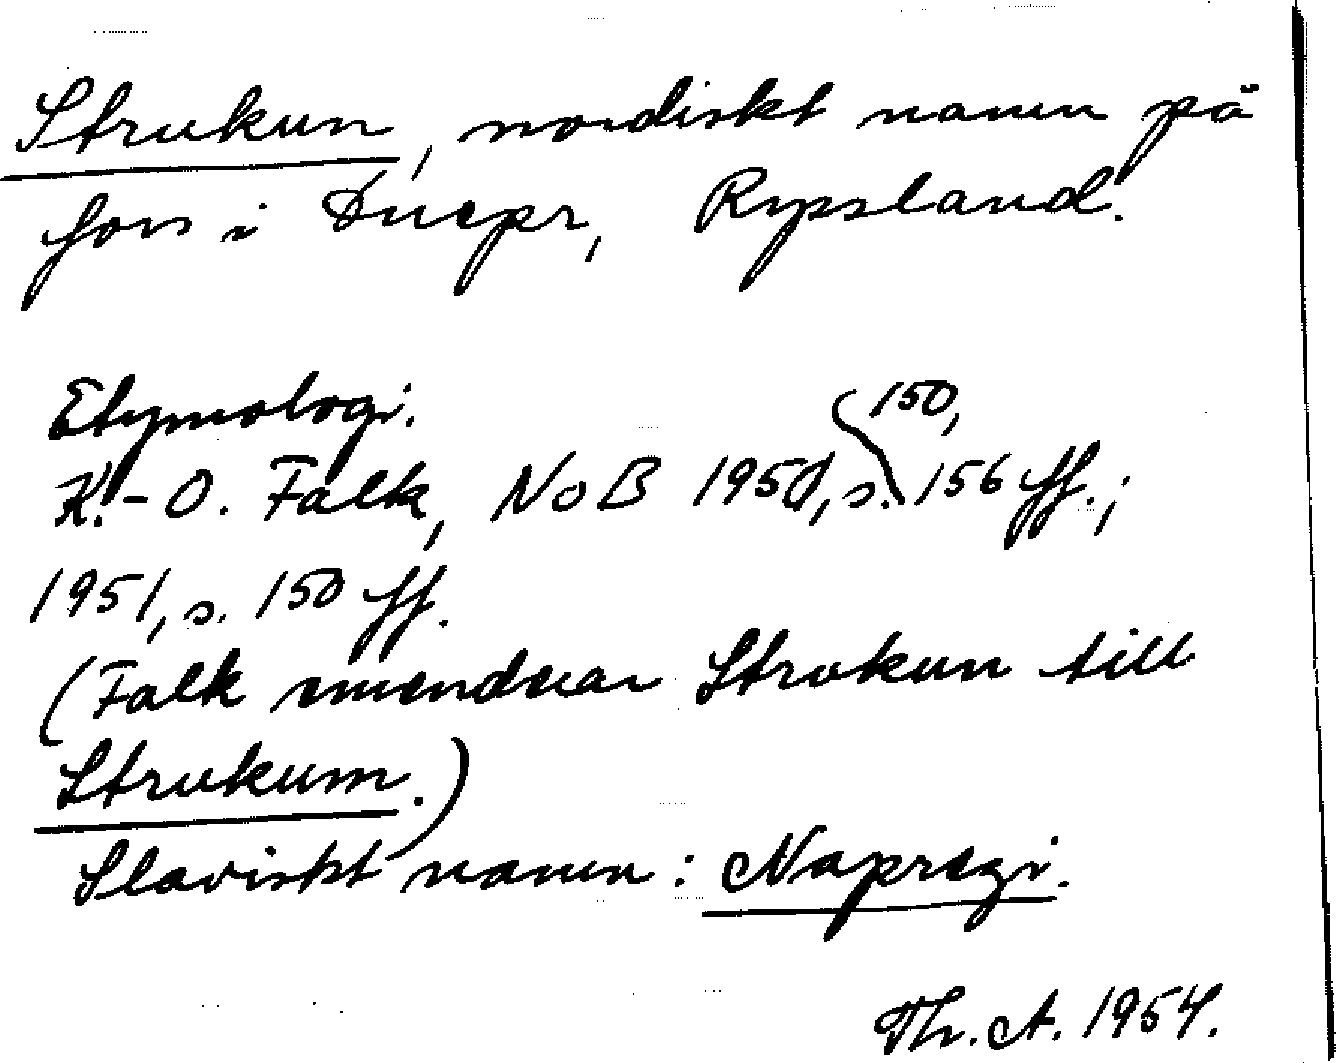 Strukun, nordiskt namn på
fors i Dnepr, Ryssland.
Etymologi.
150,
K.-O. Falk, NoB 1950, s. 156 ff.;
1951, s. 150 ff.
(Falk emenderar Strokun till
Strukum.)
Slaviskt namn: Napręzi.
Th. A. 1954.